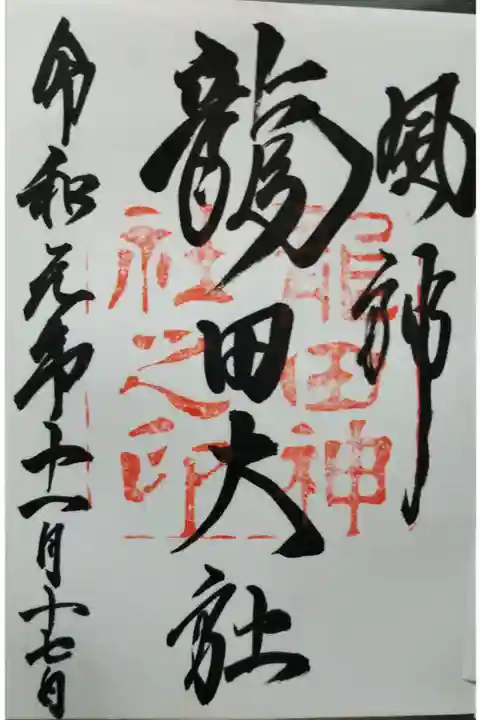 風神
龍田大社
令和元年十一月十七日
龍田神
社之印